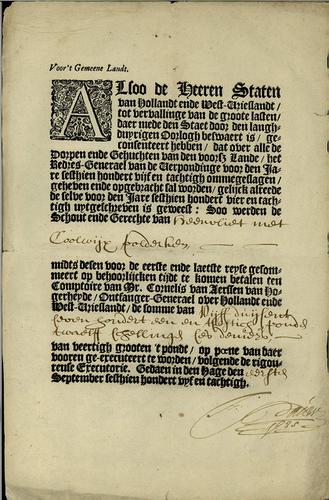 Voor't Gemeene Landt.
ALsoo de Heeren Staten
van Hollandt ende West-Vrieslandt /
tot vervallinge van de groote lasten /
daer mede den Staet door den langh-
duyrigen Oorlogh beswaert is / ge-
consenteert hebben / dat over alle de
Dorpen ende Gehuchten van den voorsz Lande / het
Redres-Generael van de Verpondinge voor den Ja-
re sesthien hondert vijf en tachtigh ommegeslagen /
geheven ende opgebracht sal worden / gelijck alreede
de selve voor den Jare sesthien hondert vier en tach-
tigh uytgeschreven is geweest : Soo werden de
Schout ende Gerechte van Heenvliet met
Coolwijx polderken
midts desen voor de eerste ende laetste reyse gesom-
meert op behoorlijcken tijdt te komen betalen ten
Comptoire van Mr. Cornelis van Aerssen van Ho-
gerheyde / Ontfanger-Generael over Hollandt ende
West-Vrieslandt / de somme van Vijff duijsent
seven hondert een en tachtigh ponde
twaelff schellinge ses deniers
van veertigh grooten 't pondt / op pœne van daer
vooren ge-executeert te worden / volgende de rigou-
reuse Executorie. Gedaen in den Hage den eersten
September sesthien hondert vyf en tachtigh.